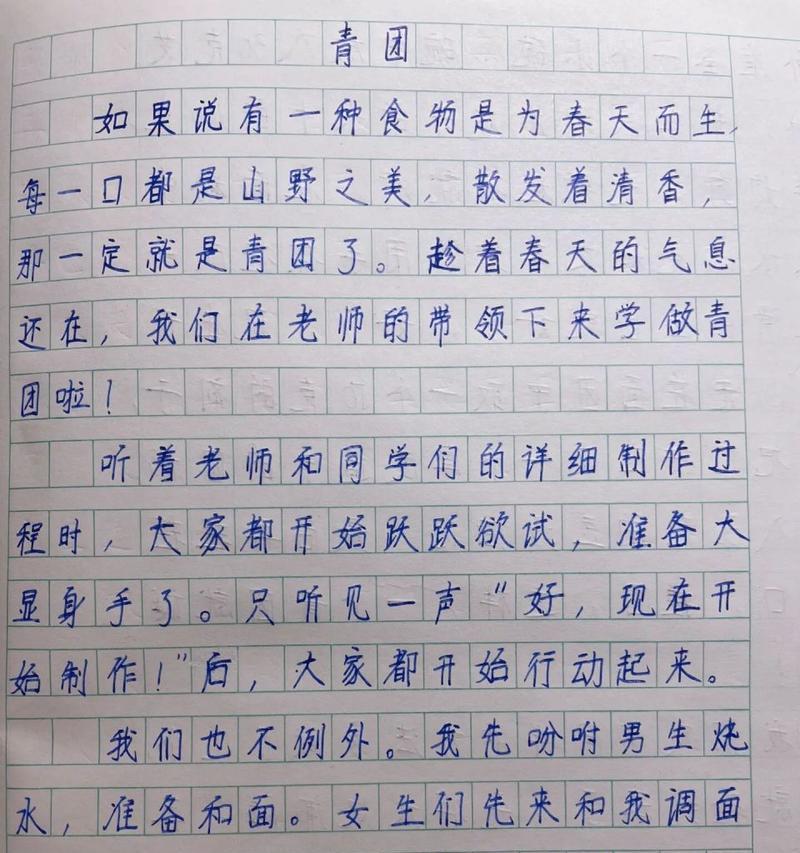 青团
如果说有一种食物是为春天而生,
每一口都是山野之美，散发着清香，
那一定就是青团了。趁着春天的气息
还在，我们在老师的带领下来学做青
团啦！
听着老师和同学们的详细制作过
程时，大家都开始跃跃欲试，准备大
显身手了。只听见一声“好，现在开
始制作！”后，大家都开始行动起来。
我们也不例外。我先吩咐男生烧
水，准备和面。女生们先来和我调面